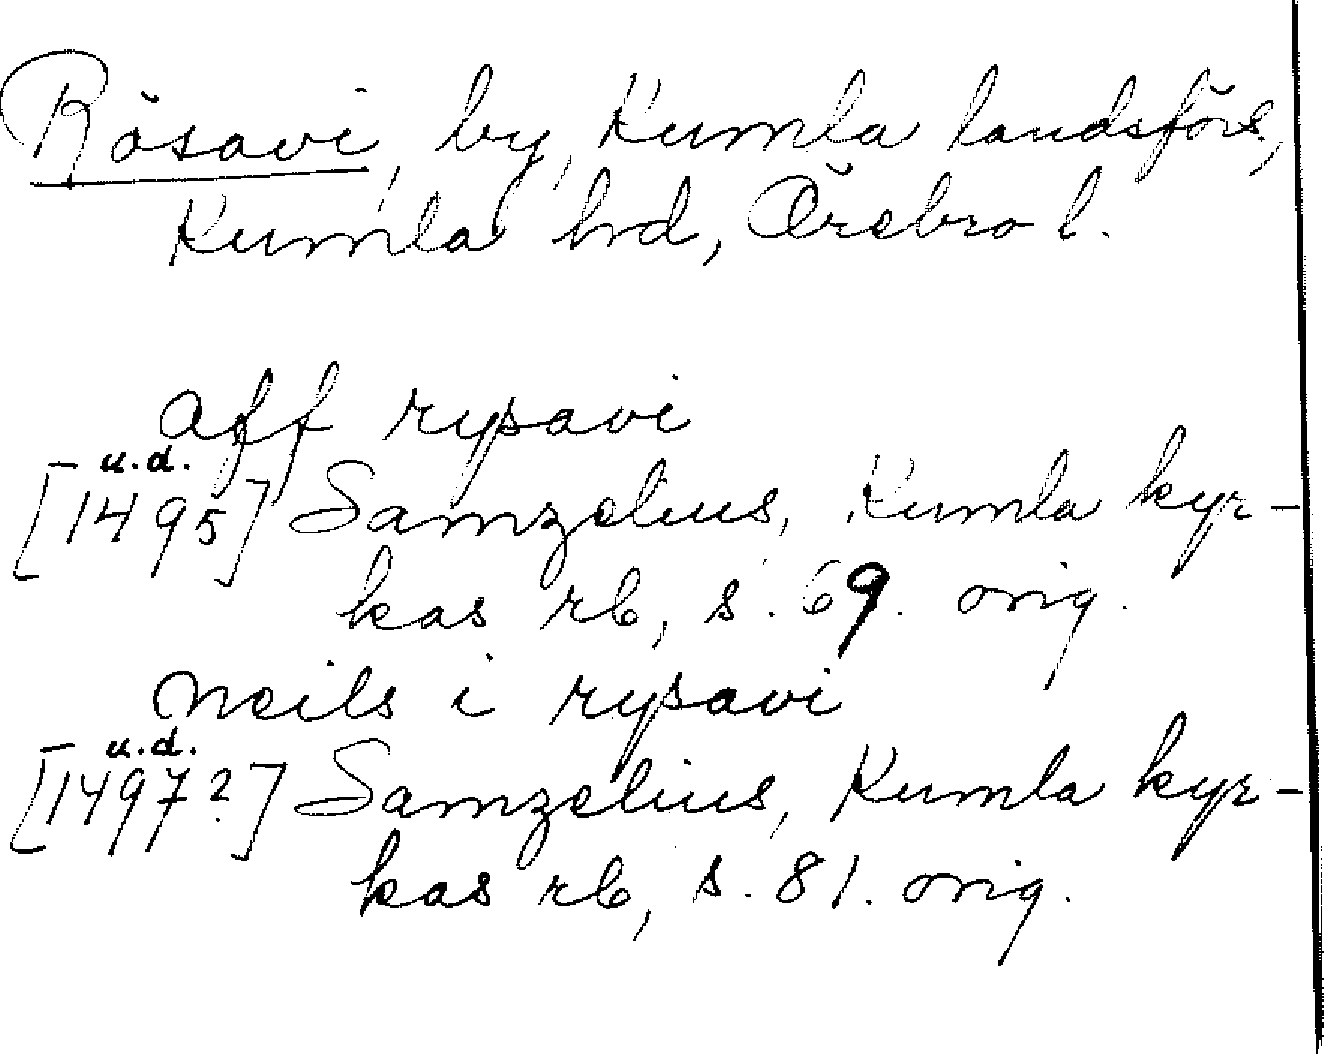 Rösavi, by, Kumla landsförs,
Kumla hd, Örebro l.
aff rysavi
[1495] u.d. Samzelius, Kumla kyr-
kas rb, s. 69. orig.
neils i rysavi
[1497?] u.d. Samzelius, Kumla kyr-
kas rb, s. 81. orig.